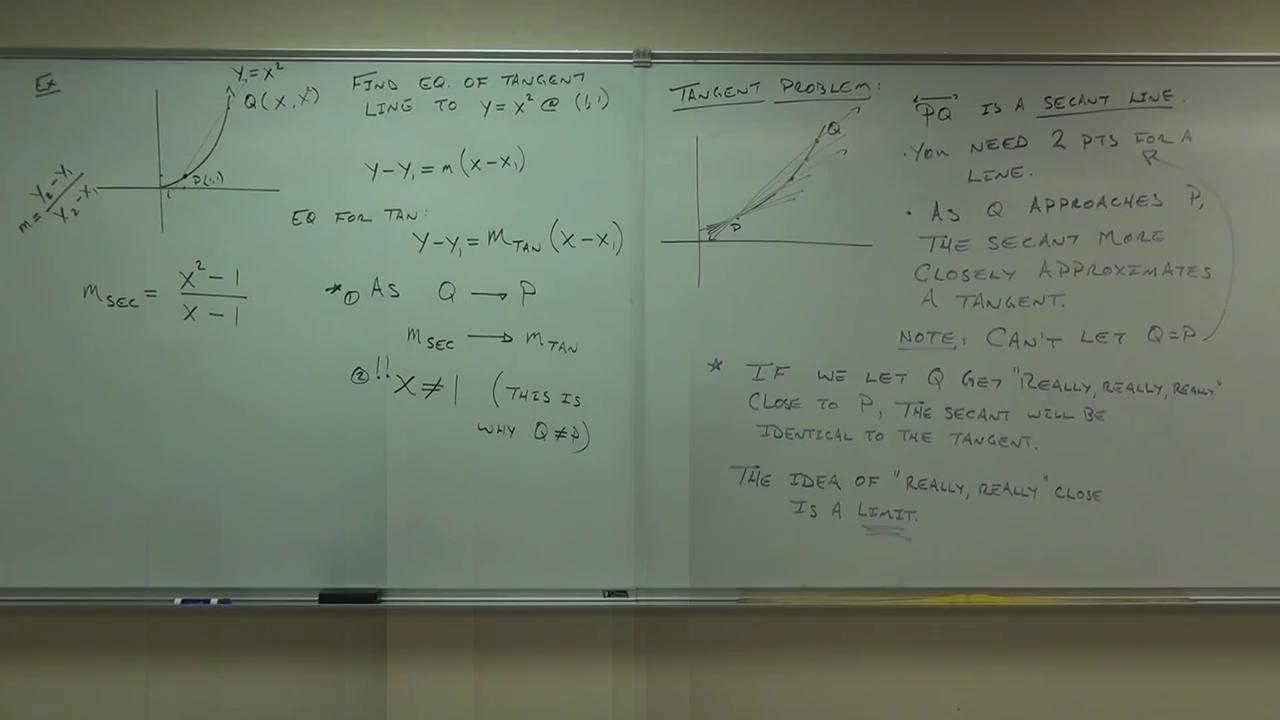 Ex
Y=X²
Q(X, X²)
P(1,1)
m = Y₂-Y₁ / X₂-X₁
m_SEC = X²-1 / X-1
FIND EQ. OF TANGENT
LINE TO Y=X² @ (1,1)
Y-Y₁ = m(X-X₁)
EQ FOR TAN:
Y-Y₁ = m_TAN (X-X₁)
* ① AS Q → P
m_SEC → m_TAN
② !! X≠1 (THIS IS
WHY Q≠P)
TANGENT PROBLEM:
Q
P
PQ IS A SECANT LINE.
• YOU NEED 2 PTS FOR A
LINE.
• AS Q APPROACHES P,
THE SECANT MORE
CLOSELY APPROXIMATES
A TANGENT.
NOTE: CAN'T LET Q=P
* IF WE LET Q GET "REALLY, REALLY, REALLY"
CLOSE TO P, THE SECANT WILL BE
IDENTICAL TO THE TANGENT.
THE IDEA OF "REALLY, REALLY" CLOSE
IS A LIMIT.